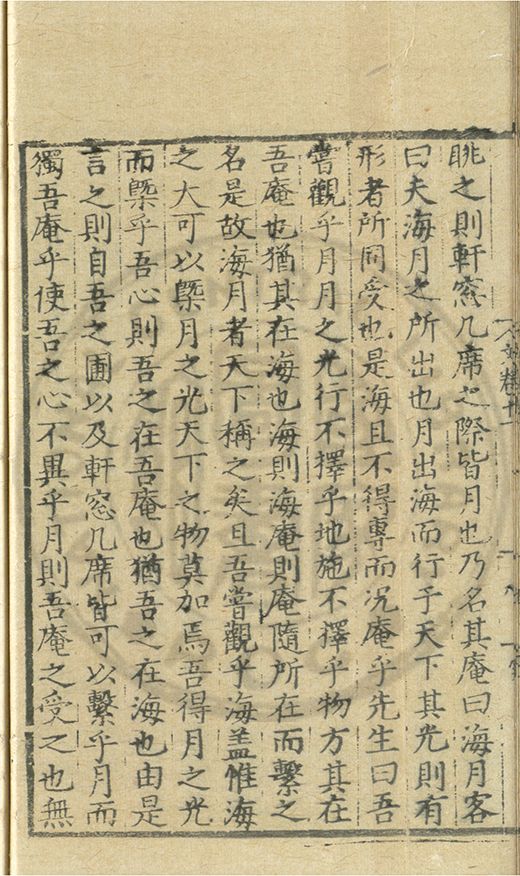 眺之則軒窓几席之際皆月也乃名其庵曰海月客
曰夫海月之所出也月出海而行于天下其光則有
形者所同受也是海且不得專而况庵乎先生曰吾
嘗觀乎月月之光行不擇乎地施不擇乎物方其在
吾庵也猶其在海也海則海庵則庵隨所在而繫之
名是故海月者天下稱之矣且吾嘗觀乎海盖惟海
之大可以槩月之光天下之物莫加焉吾得月之光
而槩乎吾心則吾之在吾庵也猶吾之在海也由是
言之則自吾之圃以及軒窓几席皆可以繫乎月而
獨吾庵乎使吾之心不異乎月則吾庵之受之也無